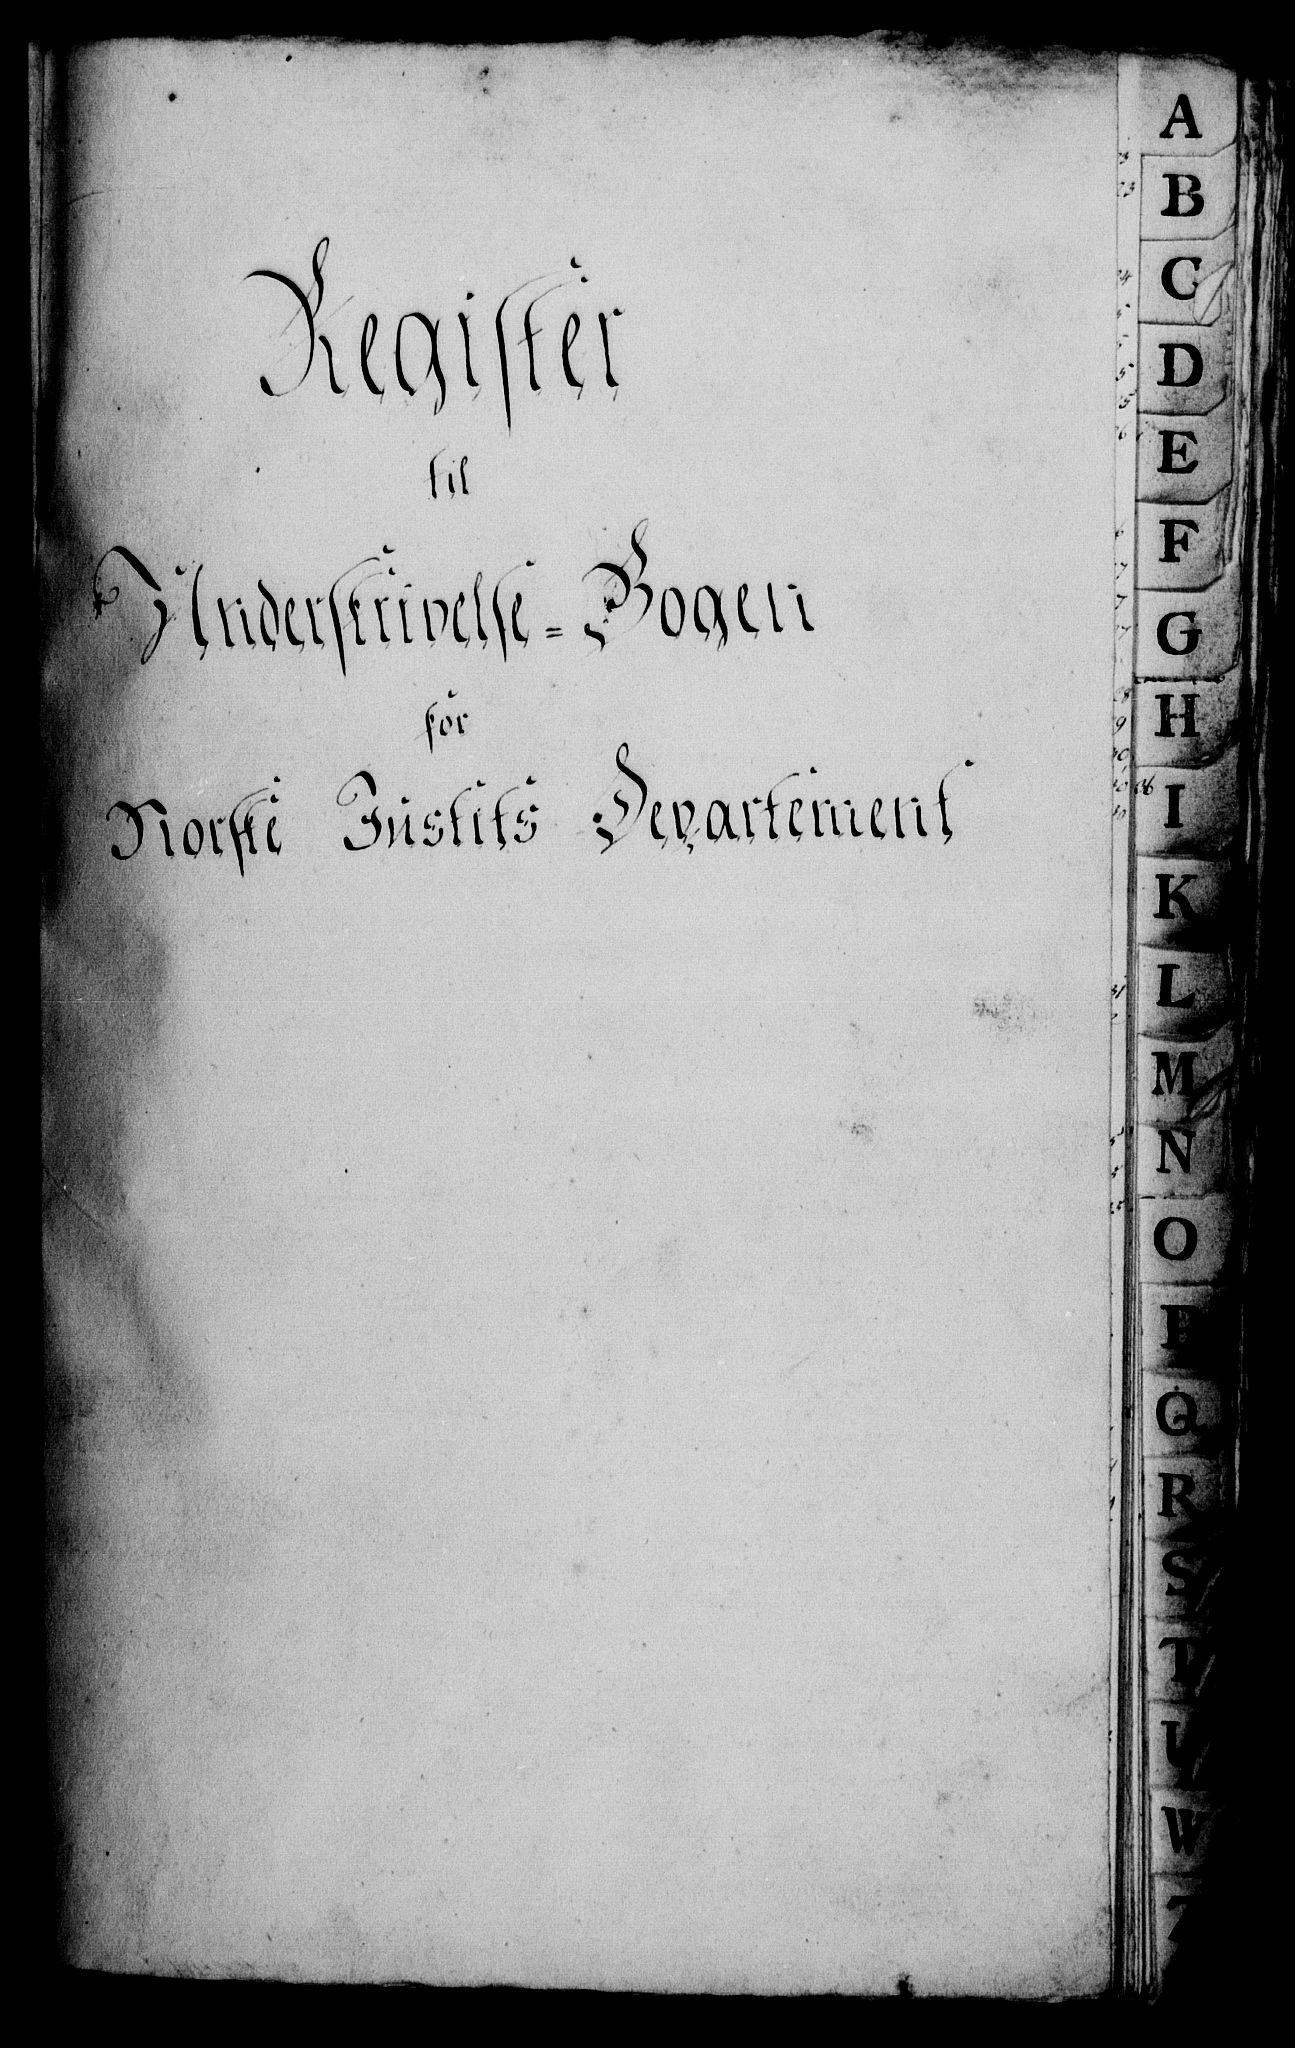 Register
til
Underskrivelse=Bogen
for
Norske Justits Departement
A
B
C
D
E
F
G
H
I
K
L
M
N
O
P
Q
R
S
T
U
W